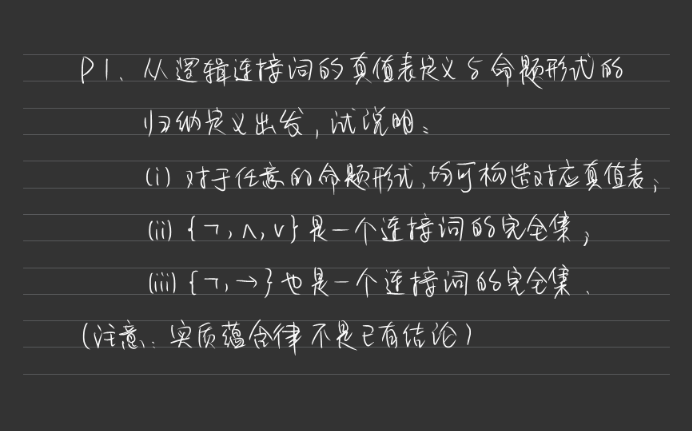 P1、从逻辑连接词的真值表定义与命题形式的
归纳定义出发，试说明：
(i) 对于任意的命题形式，均可构造对应真值表；
(ii) {¬,∧,∨}是一个连接词的完全集；
(iii) {¬,→}也是一个连接词的完全集.
(注意：实质蕴含律不是已有结论)